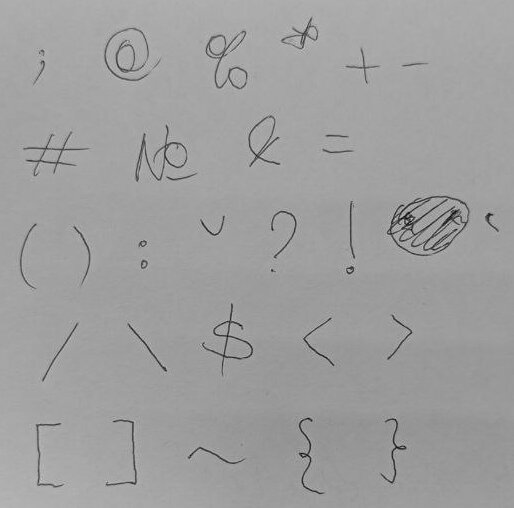 ; @ % * + -
# № & =
( ) : ˇ ? !
/ \ $ < >
[ ] ~ { }